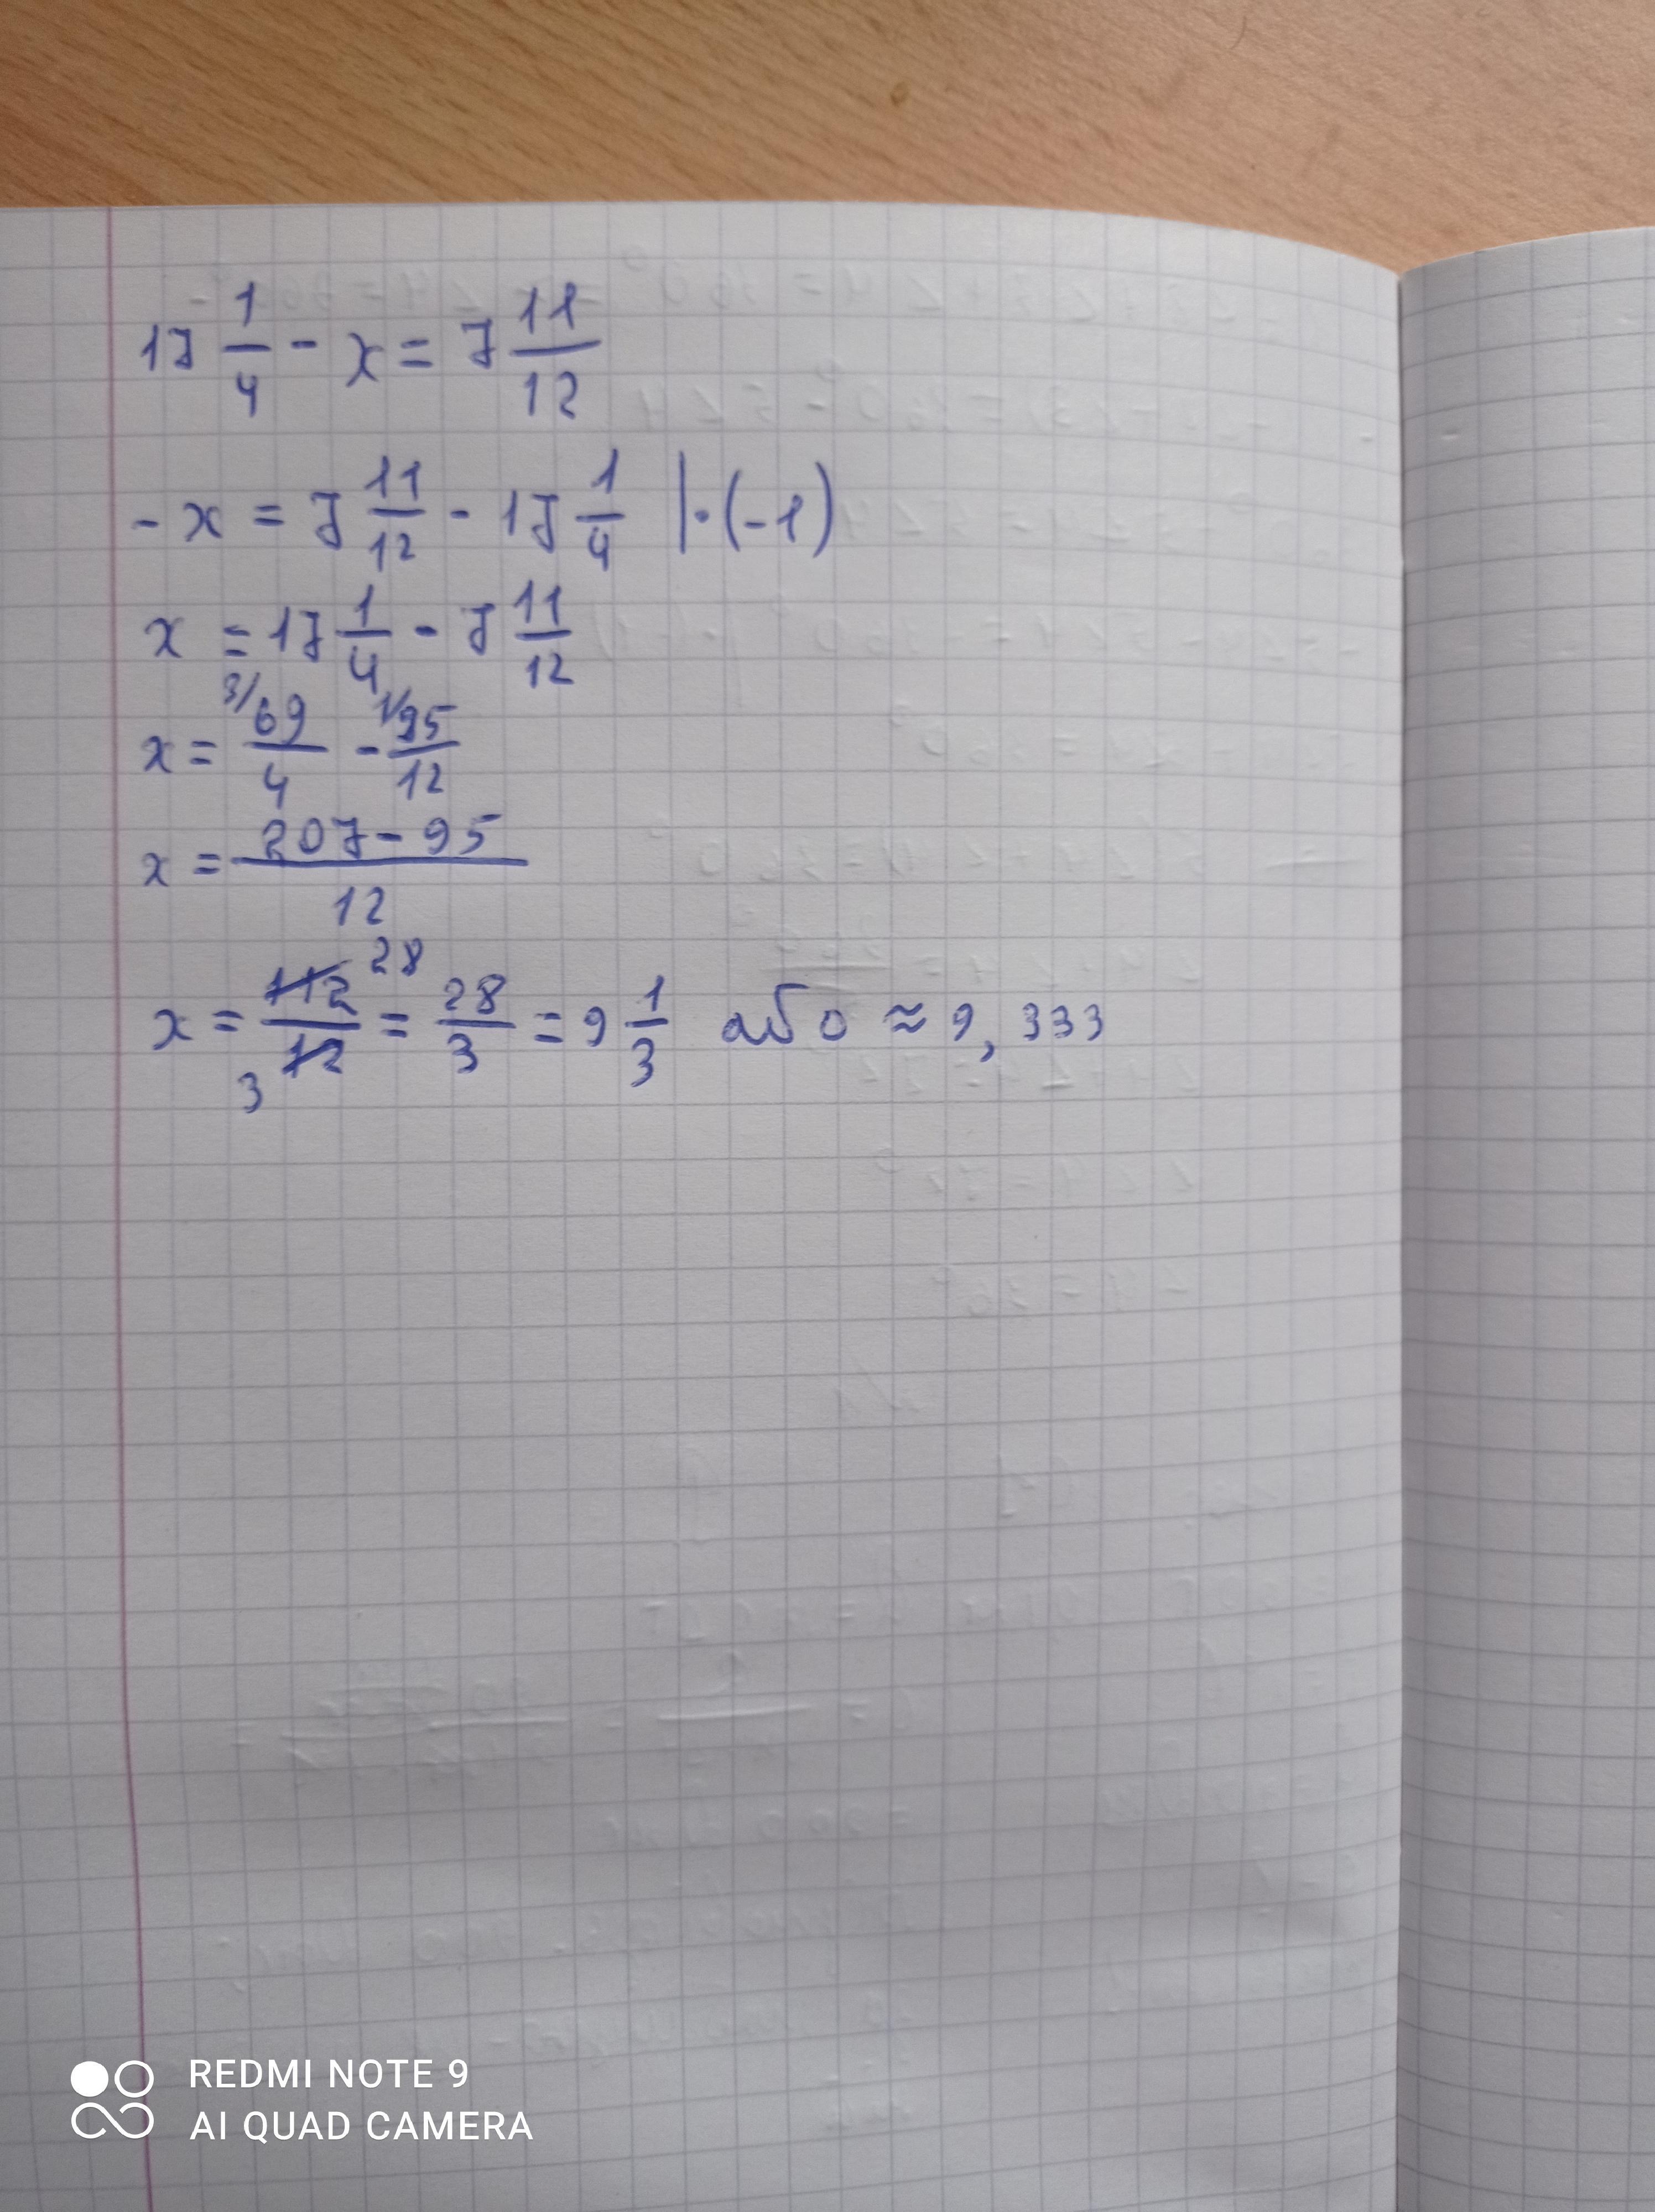 17 1/4 - x = 7 11/12
- x = 7 11/12 - 17 1/4 | · (-1)
x = 17 1/4 - 7 11/12
x = 3/ 69/4 - 1/ 95/12
x = (207 - 95)/12
x = 112/12 28 3 = 28/3 = 9 1/3 або ≈ 9,333
REDMI NOTE 9
AI QUAD CAMERA